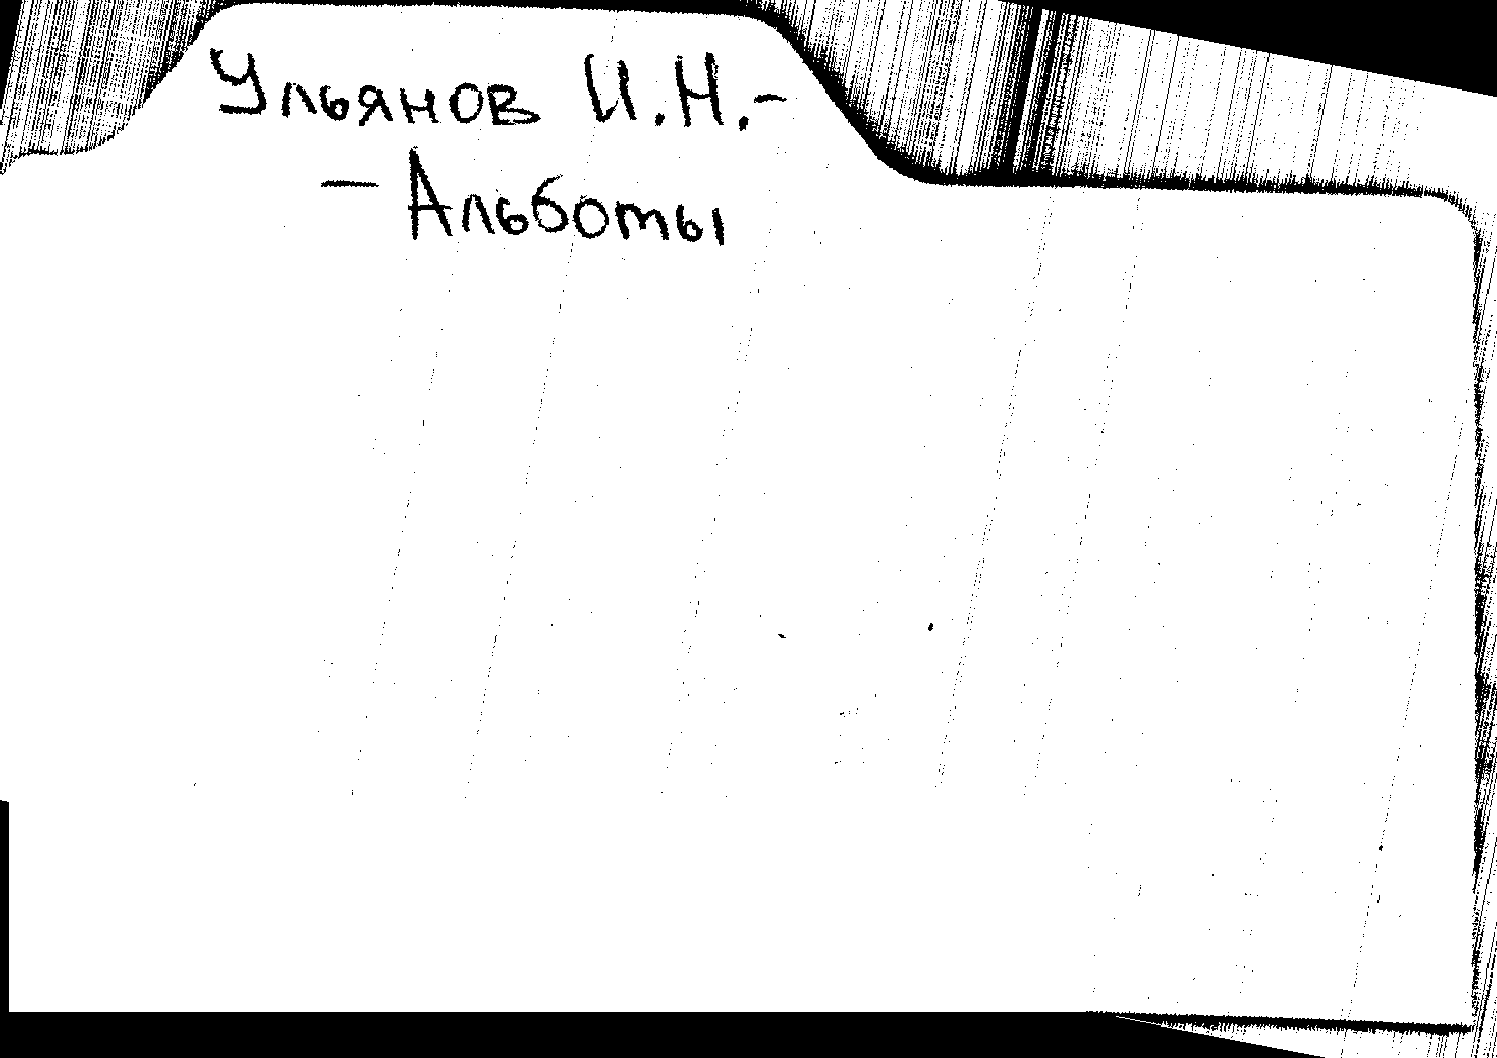 Ульянов И.Н.-
- Альбомы